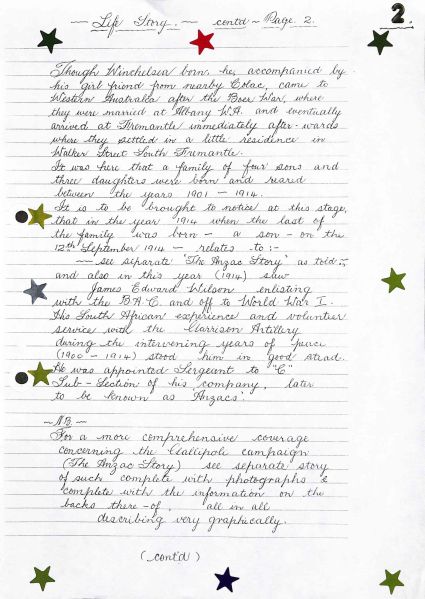 ~ Life Story. ~ cont'd ~ Page. 2.
2.
Though Winchelsea born, he, accompanied by
his girl friend from nearby Colac, came to
Western Australia after the Boer War, where
they were married at Albany W.A. and eventually
arrived at Fremantle immediately after-wards
where they settled in a little residence in
Walker Street South Fremantle.
It was here that a family of four sons and
three daughters were born and reared
between the years 1901 - 1914.
It is to be brought to notice at this stage,
that in the year 1914 when the last of
the family was born - a son - on the
12th September 1914 - relates to :-
~ see separate "The Anzac Story" as told :~
and also in this year (1914) saw
James Edward Wilson enlisting
with the B.A.C. and off to World War I.
His South African experience and volunteer
service with the Garrison Artillery
during the intervening years of peace
(1900 - 1914) stood him in good stead.
He was appointed Sergeant to "C"
Sub-Section of his company, later
to be known as Anzacs.
~ N.B. ~
For a more comprehensive coverage
concerning the Gallipoli campaign
(The Anzac Story) see separate story
of such complete with photographs &
complete with the information on the
backs there-of, all in all
describing very graphically.
(cont'd)